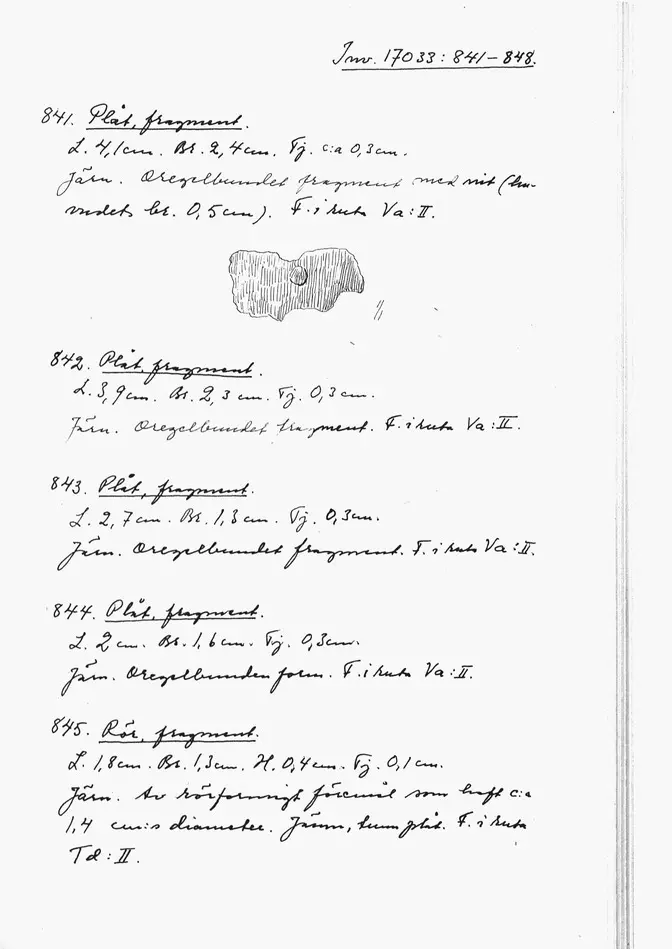 Inv. 17033: 841-848.
841. Plåt, fragment.
L. 4,1cm. Br. 2,4cm. Tj. c:a 0,3cm.
Järn. Oregelbundet fragment med nit (hu-
vudets br. 0,5cm). F. i ruta Va:II.
1/1
842. Plåt, fragment.
L. 3,9cm. Br. 2,3cm. Tj. 0,3cm.
Järn. Oregelbundet fragment. F. i ruta Va:II.
843. Plåt, fragment.
L. 2,7cm. Br. 1,3cm. Tj. 0,3cm.
Järn. Oregelbundet fragment. F. i ruta Va:II.
844. Plåt, fragment.
L. 2cm. Br. 1,6cm. Tj. 0,3cm.
Järn. Oregelbunden form. F. i ruta Va:II.
845. Rör, fragment.
L. 1,8cm. Br. 1,3cm. H. 0,4cm. Tj. 0,1cm.
Järn. Av rörformigt föremål som haft c:a
1,4 cm:s diameter. Jämn, tunn plåt. F. i ruta
Td:II.